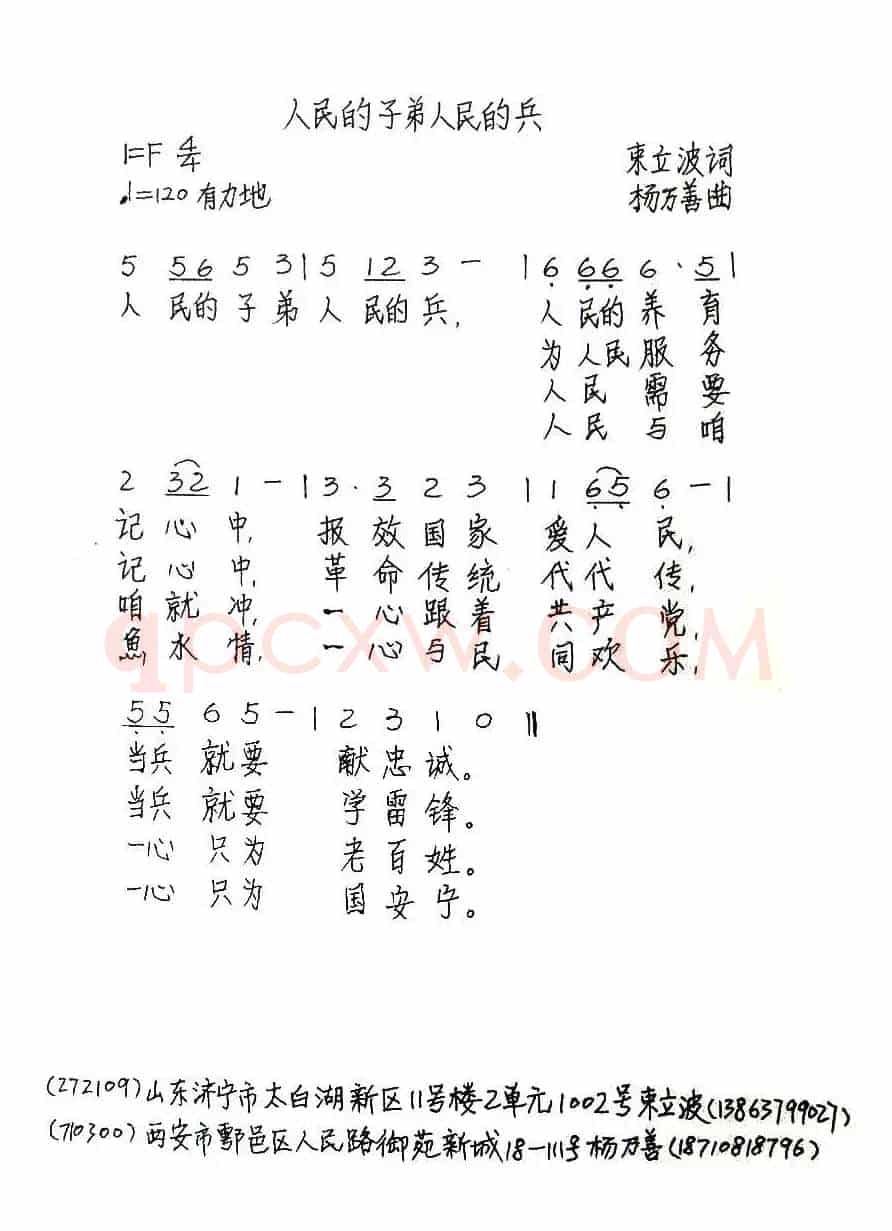 人民的子弟人民的兵
1=F 4/4
束立波词
♩=120 有力地
杨万善曲
5 56 5 3 | 5 12 3 - | 6 66 6 · 5 |
人 民的 子 弟 人 民的 兵, 人 民的 养 育
为 人民 服 务
人 民 需 要
人 民 与 咱
2 32 1 - | 3 · 3 2 3 | 1 65 6 - |
记 心 中, 报 效 国 家 爱 人 民,
记 心 中, 革 命 传 统 代 代 传,
咱 就 冲, 一 心 跟 着 共 产 党,
魚 水 情, 一 心 与 民 同 欢 乐,
qpcxw.COM
55 6 5 - | 2 3 1 0 ‖
当兵 就 要 献 忠 诚。
当兵 就 要 学 雷 锋。
一心 只 为 老 百 姓。
一心 只 为 国 安 宁。
(272109)山东济宁市太白湖新区11号楼2单元1002号束立波(13863799027)
(710300)西安市鄠邑区人民路御苑新城18-111号杨万善(18710818796)